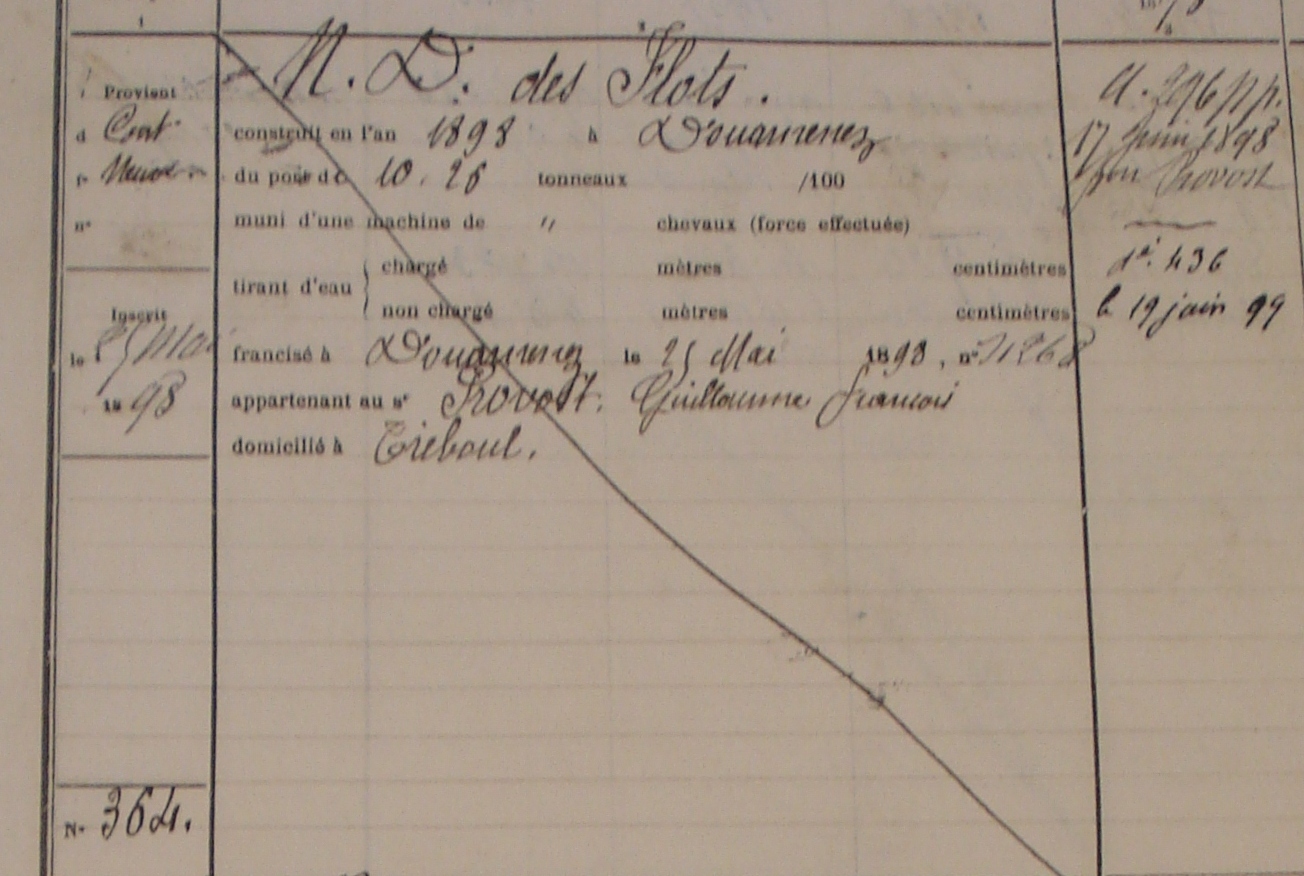 1
Provient
d Cont
fº Neuve
nº
Inscrit
le 25 Mai
18 98
Nº 364.
N. D. des Flots.
construit en l'an 1898 à Douarnenez
du poids de 10.26 tonneaux /100
muni d'une machine de " chevaux (force effectuée)
tirant d'eau { chargé mètres centimètres
non chargé mètres centimètres
francisé à Douarnenez le 25 Mai 1898, nº
appartenant au sr Provost. Guillaume François
domicilié à Tréboul.
A. 296 pp.
17 Juin 1898
Provost
dº. 436
le 19 juin 99